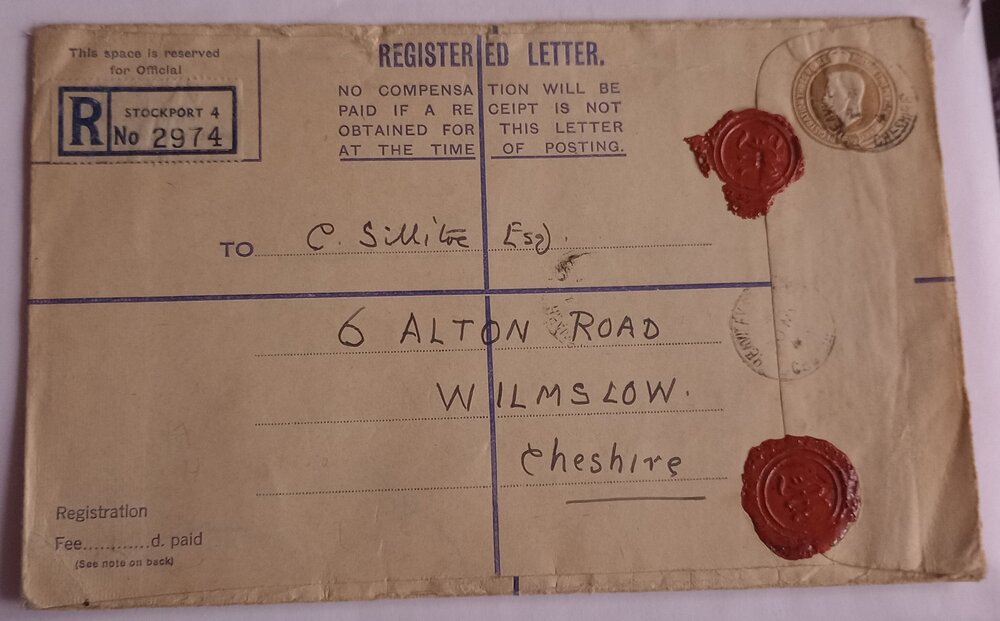 This space is reserved
for Official
R
STOCKPORT 4
No 2974
REGISTERED LETTER.
NO COMPENSATION WILL BE
PAID IF A RECEIPT IS NOT
OBTAINED FOR THIS LETTER
AT THE TIME OF POSTING.
TO C. Sillitoe Esq.
6 ALTON ROAD
WILMSLOW.
Cheshire
Registration
Fee............d. paid
(See note on back)